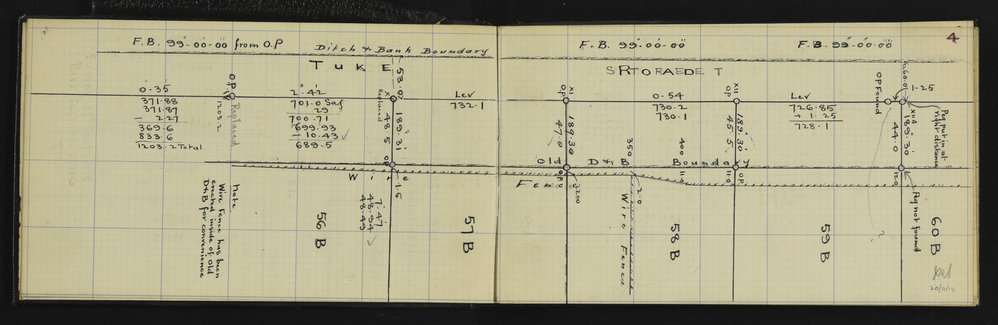 F.B. 99-00-00 from O.P
Ditch & Bank Boundary
TUKE
0-35
371.88
371.87
- 2.27
369.6
833.6
1203.2 Total
O.P
1203.2
Replaced
2-42
701.0 Sag
.29
700.71
699.93
- 10.43
689.5
X
Replaced
53.0
189.31
48.5
O.P
Lev
732.1
Wire
1.5
7.47
48.94
48.49
Note
Wire fence has been
erected inside of old
D&B for convenience
56 B
57 B
F.B. 99-00-00
F.B. 99-00-00
4
XI
OP
189.30
47.0
0-54
730.2
730.1
XII
OP
189.30
45.5
Lev
726.85
+ 1.25
728.1
OP Found
60.0
1-25
189.30
44.0
Peg put in at
right distance
Old D & B Boundary
350
400
Fence
O.P
200
2.0
110
110
O.P
110
Wire Fence
Peg not found
58 B
59 B
60 B